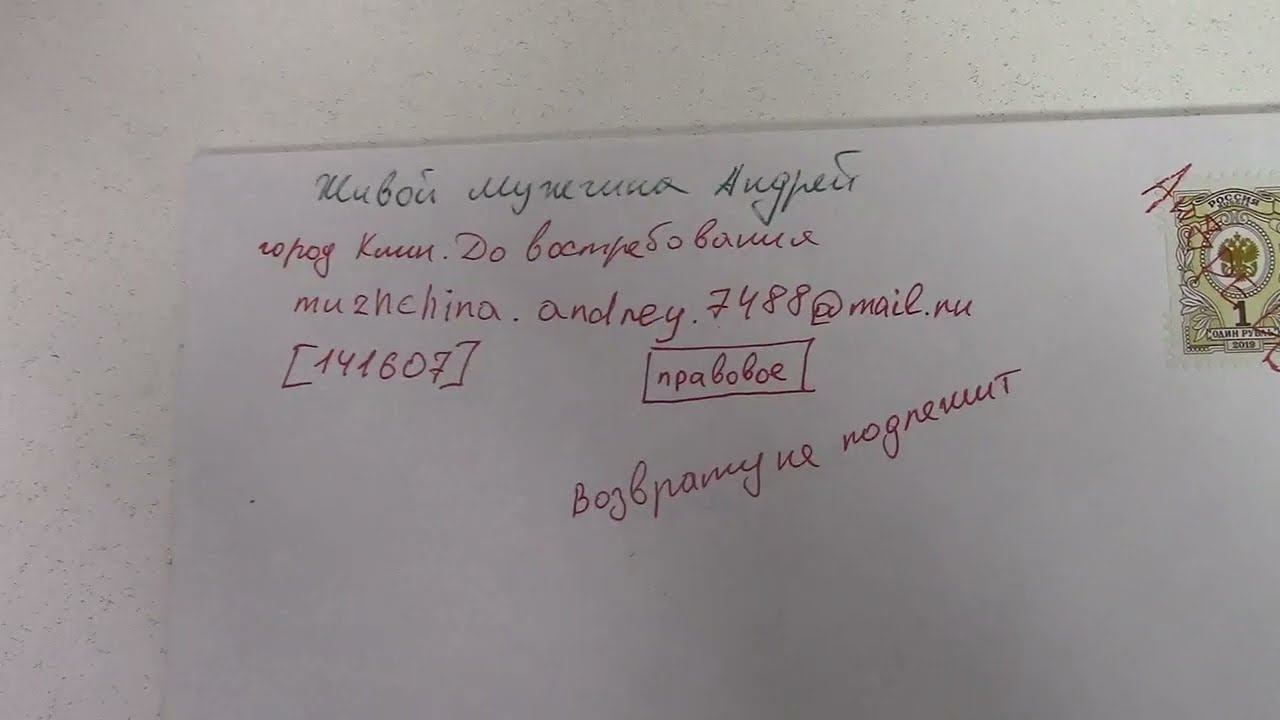 Живой мужчина Андрей
город Клин. До востребования
muzhchina.andrey.7488@mail.ru
[141607]
правовое
Возврату не подлежит
РОССИЯ
1
ОДИН РУБЛЬ
2019